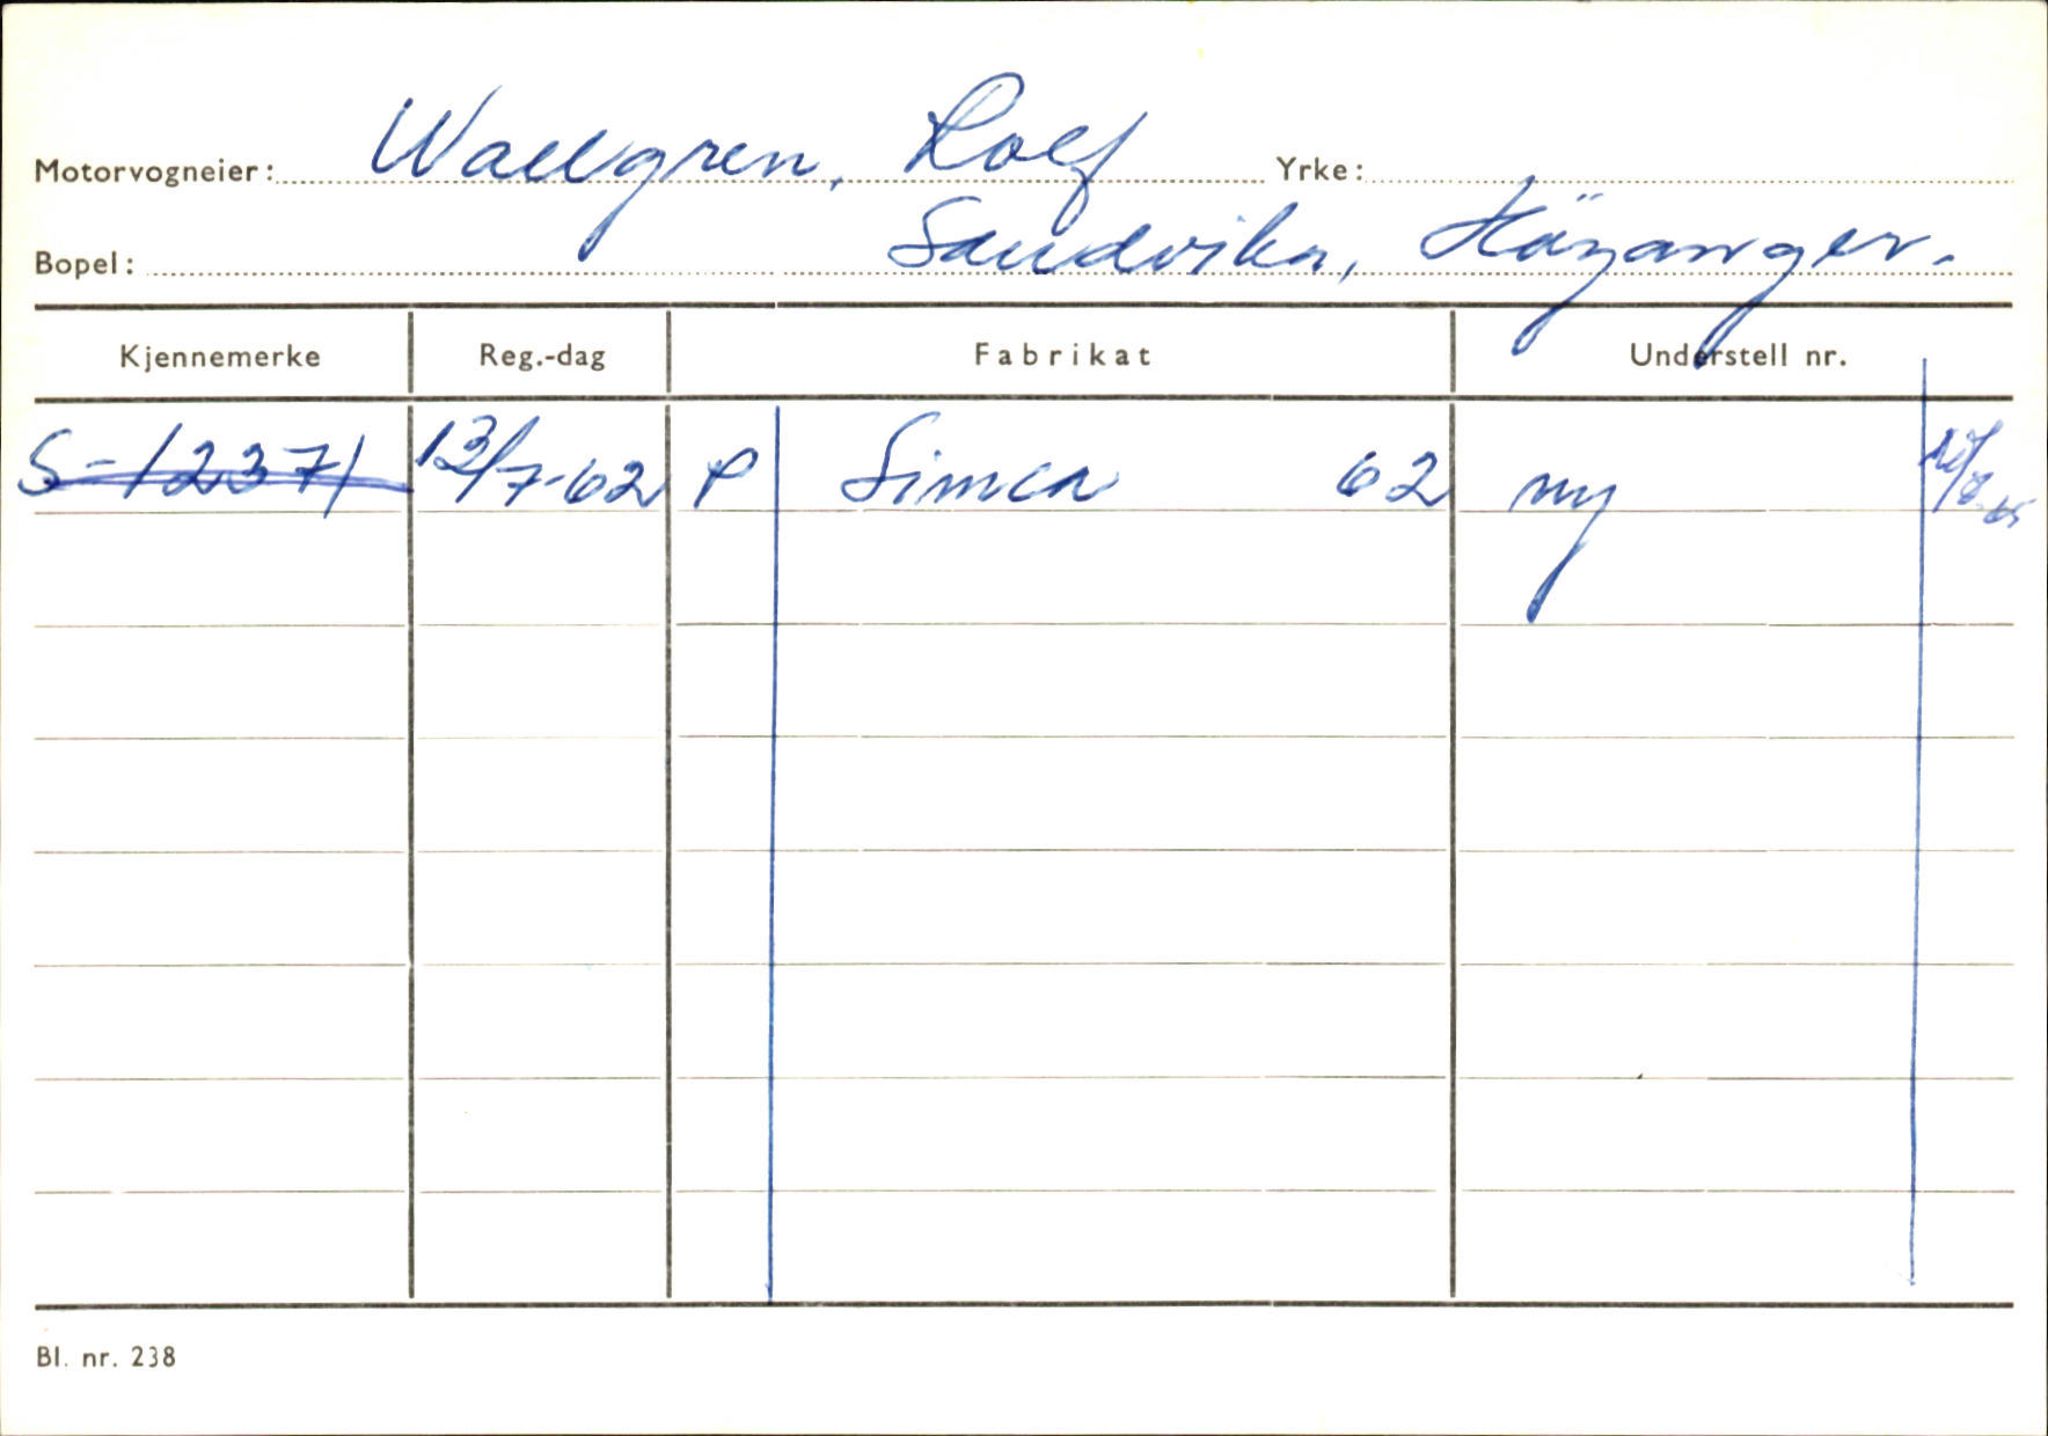 Motorvogneier: Wallgren, Rolf Yrke:
Bopel: Sandvika, Höyanger.
Kjennemerke Reg.-dag Fabrikat Understell nr.
S-12371 13/7-62 P Simca 62 ny
Bl. nr. 238